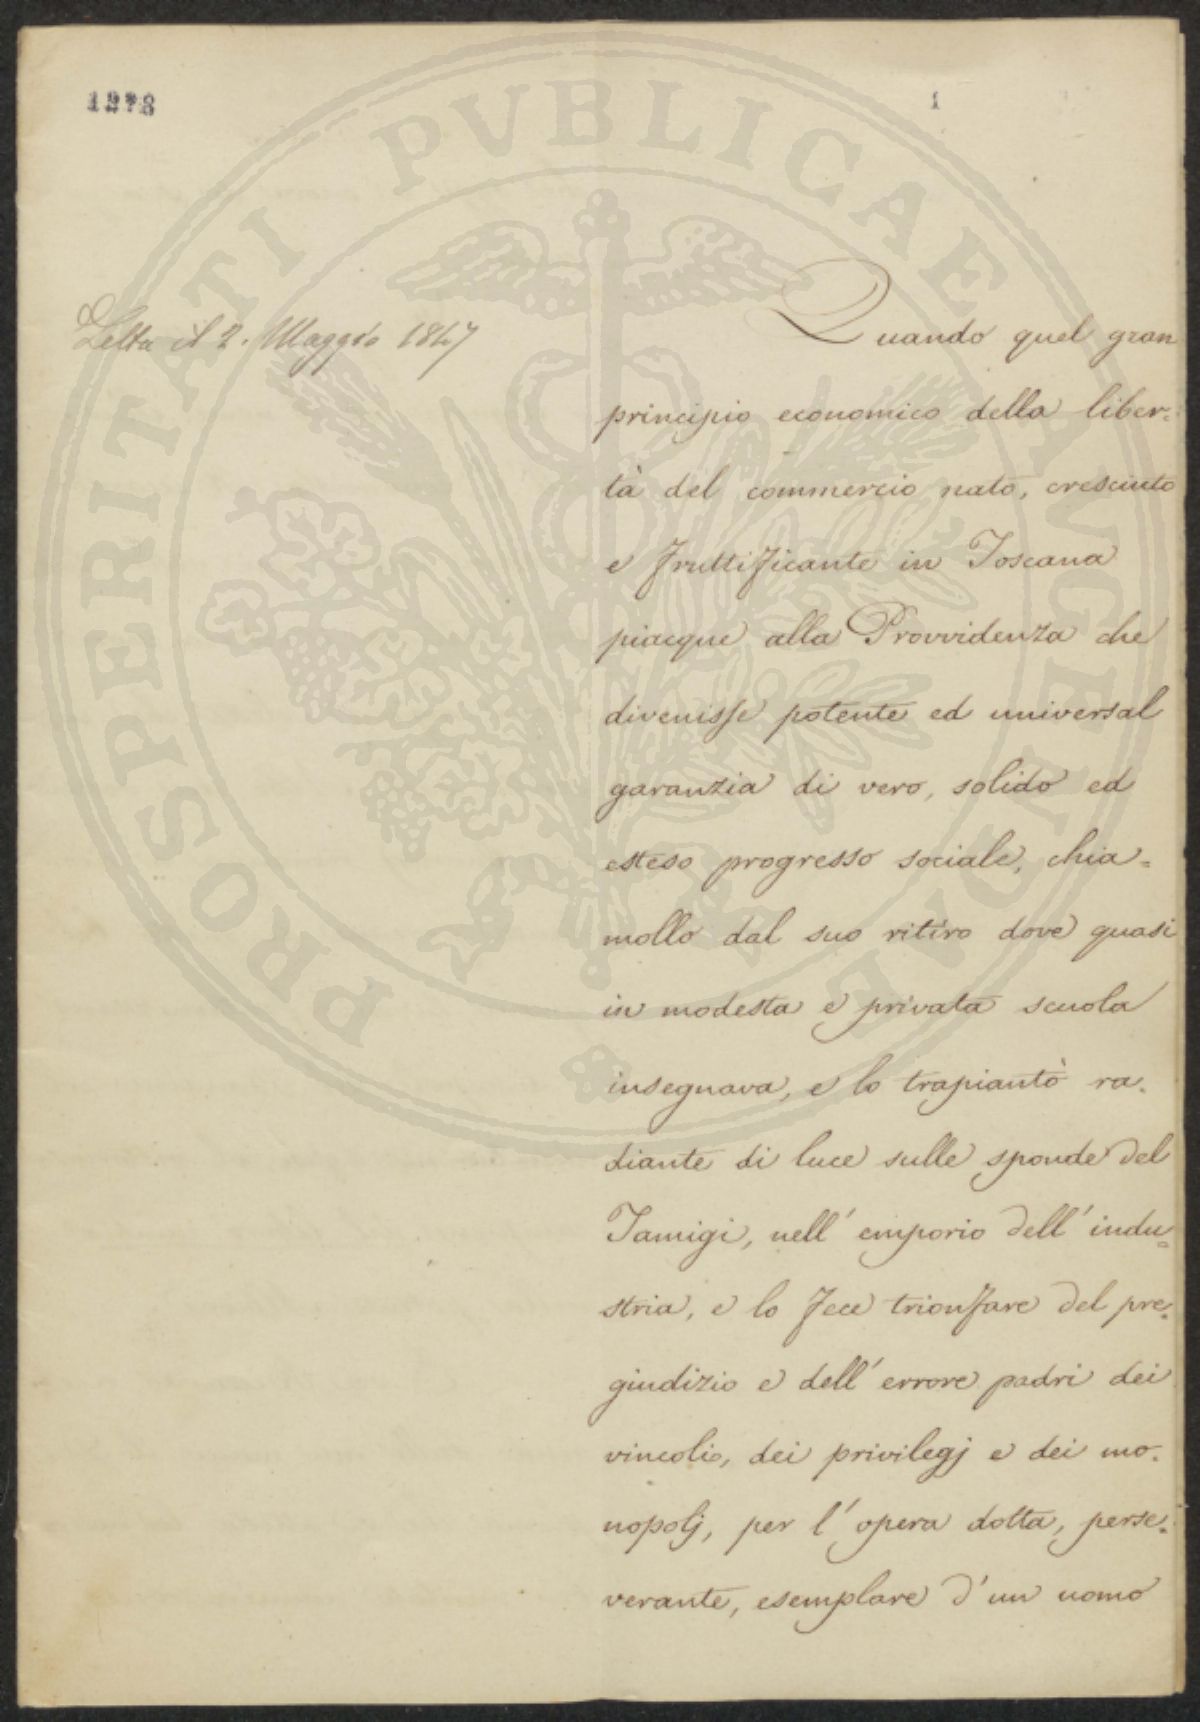 1278
1
PROSPERITATI PVBLICAE AVGENDAE
Letta il 2. Maggio 1847
Quando quel gran
principio economico della liber=
tà del commercio nato, cresciuto
e fruttificante in Toscana
piacque alla Provvidenza che
divenisse potente ed universal
garanzia di vero, solido ed
esteso progresso sociale, chia=
mollo dal suo ritiro dove quasi
in modesta e privata scuola
insegnava, e lo trapiantò ra=
diante di luce sulle sponde del
Tamigi, nell' emporio dell' indu=
stria, e lo fece trionfare del pre=
giudizio e dell' errore padri dei
vincoli, dei privilegj e dei mo=
nopolj, per l' opera dotta, perse=
verante, esemplare d' un uomo